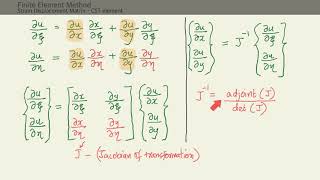 Finite Element Method
Strain Displacement Matrix - CST element
∂u/∂ξ = ∂u/∂x ∂x/∂ξ + ∂u/∂y ∂y/∂ξ
∂u/∂η = ∂u/∂x ∂x/∂η + ∂u/∂y ∂y/∂η
{∂u/∂ξ ∂u/∂η} = [∂x/∂ξ ∂y/∂ξ ∂x/∂η ∂y/∂η] {∂u/∂x ∂u/∂y}
J – (Jacobian of transformation)
{∂u/∂x ∂u/∂y} = J⁻¹ {∂u/∂ξ ∂u/∂η}
J⁻¹ = adjoint (J) / det (J)